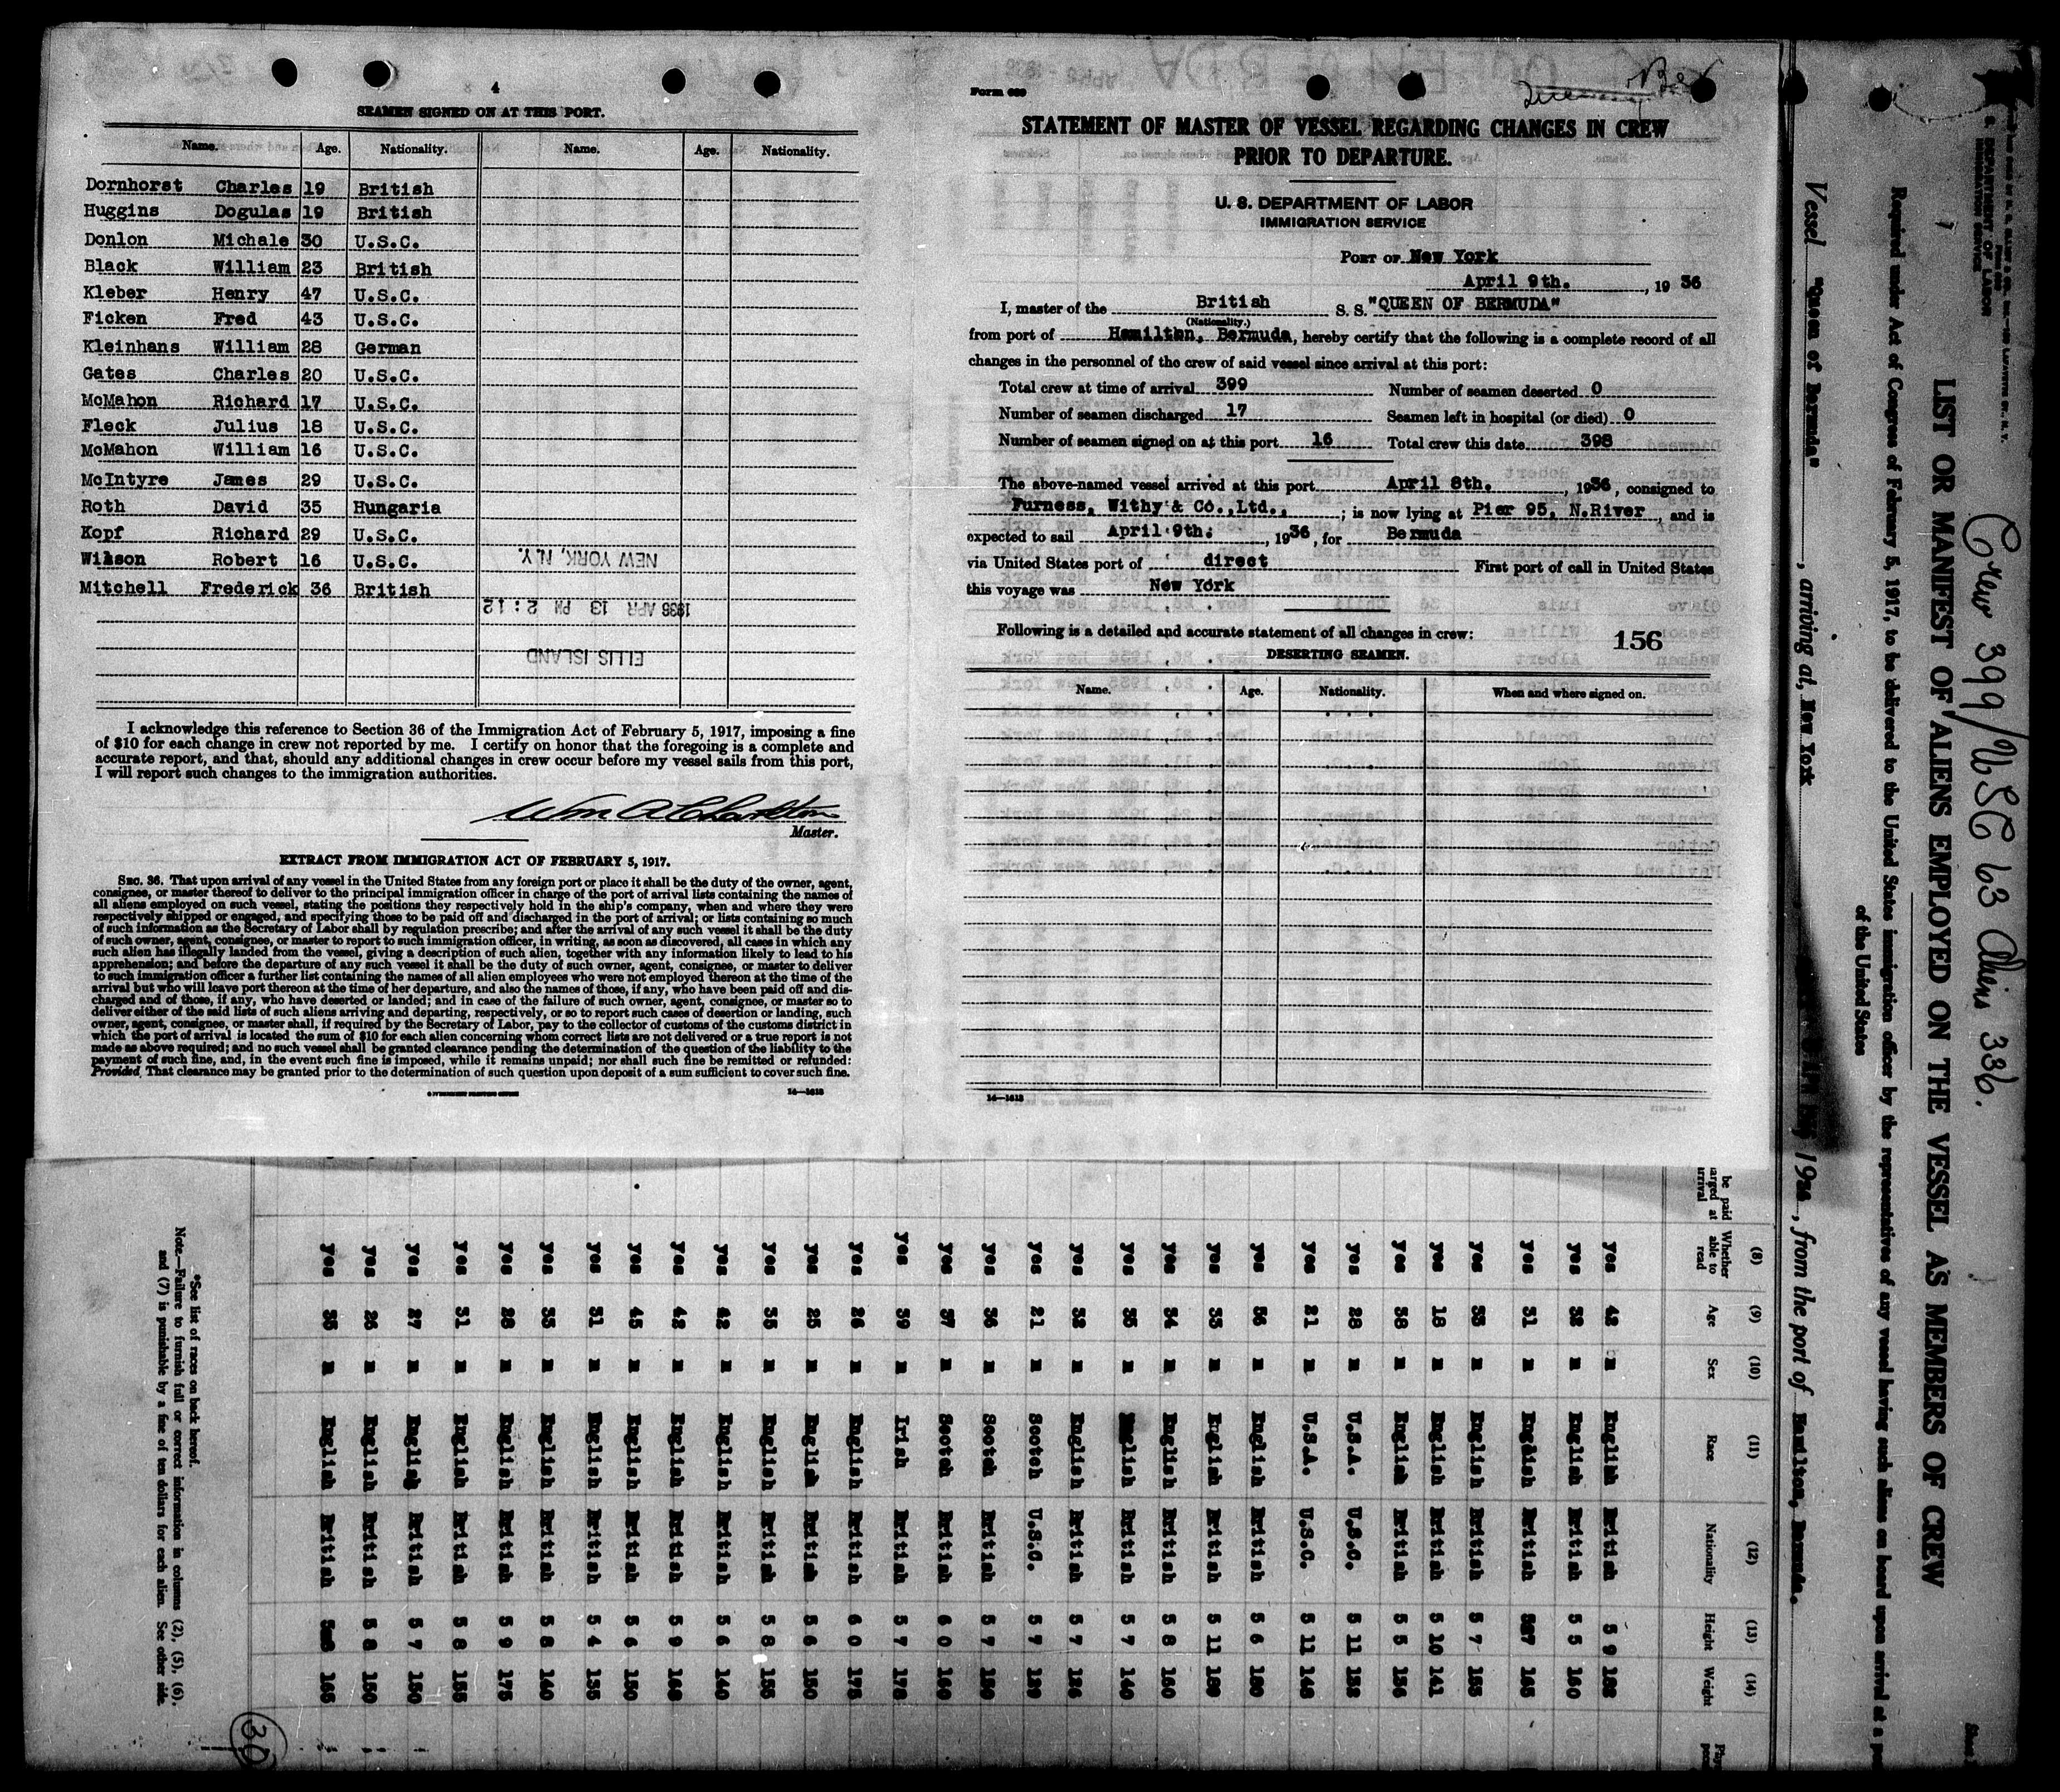 4
SEAMEN SIGNED ON AT THIS PORT.
Name. Age. Nationality. Name. Age. Nationality.
Dornhorst Charles 19 British
Huggins Dogulas 19 British
Donlon Michale 30 U.S.C.
Black William 23 British
Kleber Henry 47 U.S.C.
Ficken Fred 43 U.S.C.
Kleinhans William 28 German
Gates Charles 20 U.S.C.
McMahon Richard 17 U.S.C.
Fleck Julius 18 U.S.C.
McMahon William 16 U.S.C.
McIntyre James 29 U.S.C.
Roth David 35 Hungaria
Kopf Richard 29 U.S.C.
Wilson Robert 16 U.S.C.
Mitchell Frederick 36 British
NEW YORK, N.Y.
1936 APR 13 PM 2:12
ELLIS ISLAND
I acknowledge this reference to Section 36 of the Immigration Act of February 5, 1917, imposing a fine
of $10 for each change in crew not reported by me. I certify on honor that the foregoing is a complete and
accurate report, and that, should any additional changes in crew occur before my vessel sails from this port,
I will report such changes to the immigration authorities.
Master.
EXTRACT FROM IMMIGRATION ACT OF FEBRUARY 5, 1917.
SEC. 36. That upon arrival of any vessel in the United States from any foreign port or place it shall be the duty of the owner, agent,
consignee, or master thereof to deliver to the principal immigration officer in charge of the port of arrival lists containing the names of
all aliens employed on such vessel, stating the positions they respectively hold in the ship's company, when and where they were
respectively shipped or engaged, and specifying those to be paid off and discharged in the port of arrival; or lists containing so much
of such information as the Secretary of Labor shall by regulation prescribe; and after the arrival of any such vessel it shall be the duty
of such owner, agent, consignee, or master to report to such immigration officer, in writing, as soon as discovered, all cases in which any
such alien has illegally landed from the vessel, giving a description of such alien, together with any information likely to lead to his
apprehension; and before the departure of any such vessel it shall be the duty of such owner, agent, consignee, or master to deliver
to such immigration officer a further list containing the names of all alien employees who were not employed thereon at the time of the
arrival but who will leave port thereon at the time of her departure, and also the names of those, if any, who have been paid off and dis-
charged and of those, if any, who have deserted or landed; and in case of the failure of such owner, agent, consignee, or master so to
deliver either of the said lists of such aliens arriving and departing, respectively, or so to report such cases of desertion or landing, such
owner, agent, consignee, or master shall, if required by the Secretary of Labor, pay to the collector of customs of the customs district in
which the port of arrival is located the sum of $10 for each alien concerning whom correct lists are not delivered or a true report is not
made as above required; and no such vessel shall be granted clearance pending the determination of the question of the liability to the
payment of such fine, and, in the event such fine is imposed, while it remains unpaid; nor shall such fine be remitted or refunded:
Provided, That clearance may be granted prior to the determination of such question upon deposit of a sum sufficient to cover such fine.
14—1613
Form 689
STATEMENT OF MASTER OF VESSEL REGARDING CHANGES IN CREW
PRIOR TO DEPARTURE.
U. S. DEPARTMENT OF LABOR
IMMIGRATION SERVICE
PORT OF New York
April 9th. , 19 36
I, master of the British S. S. "QUEEN OF BERMUDA"
(Nationality.)
from port of Hamilton, Bermuda, hereby certify that the following is a complete record of all
changes in the personnel of the crew of said vessel since arrival at this port:
Total crew at time of arrival 399 Number of seamen deserted 0
Number of seamen discharged 17 Seamen left in hospital (or died) 0
Number of seamen signed on at this port 16 Total crew this date 398
The above-named vessel arrived at this port April 8th. , 1936, consigned to
Furness, Withy & Co.,Ltd., ; is now lying at Pier 95, N.River , and is
expected to sail April 9th. , 1936, for Bermuda
via United States port of direct First port of call in United States
this voyage was New York
Following is a detailed and accurate statement of all changes in crew:
156
DESERTING SEAMEN.
Name. Age. Nationality. When and where signed on.
14—1613
Crew 399/USC 63 Aliens 336.
LIST OR MANIFEST OF ALIENS EMPLOYED ON THE VESSEL AS MEMBERS OF CREW
Required under Act of Congress of February 5, 1917, to be delivered to the United States immigration officer by the representatives of any vessel having such aliens on board upon arrival at a
of the United States
Vessel "Queen of Bermuda" , arriving at, New York , from the port of Hamilton, Bermuda.
(8) (9) (10) (11) (12) (13) (14)
Whether able to read Age Sex Race Nationality Height Weight
yes 42 m English British 5 9 182
yes 32 m English British 5 5 160
yes 31 m English British 5 7 165
yes 33 m English British 5 7 153
yes 18 m English British 5 10 141
yes 38 m English British 5 5 136
yes 28 m U.S.A. U.S.C. 5 11 152
yes 21 m U.S.A. U.S.C. 5 11 148
yes 56 m English British 5 6 180
yes 33 m English British 5 11 189
yes 34 m English British 5 8 160
yes 35 m English British 5 7 140
yes 32 m English British 5 7 126
yes 21 m Scotch U.S.C. 5 7 129
yes 36 m Scotch British 5 7 150
yes 37 m Scotch British 6 0 160
yes 39 m Irish British 5 7 178
yes 26 m English British 6 0 175
yes 25 m English British 5 6 150
yes 35 m English British 5 8 155
yes 42 m English British 5 6 140
yes 42 m English British 5 9 168
yes 45 m English British 5 6 150
yes 31 m English British 5 4 135
yes 33 m English British 5 8 140
yes 28 m English British 5 9 175
yes 31 m English British 5 8 155
yes 27 m English British 5 7 150
yes 26 m English British 5 8 150
yes 35 m English British 5 8 165
*See list of races on back hereof.
Note.—Failure to furnish full or correct information in columns (2), (5), (6),
and (7) is punishable by a fine of ten dollars for each alien. See other side.
30